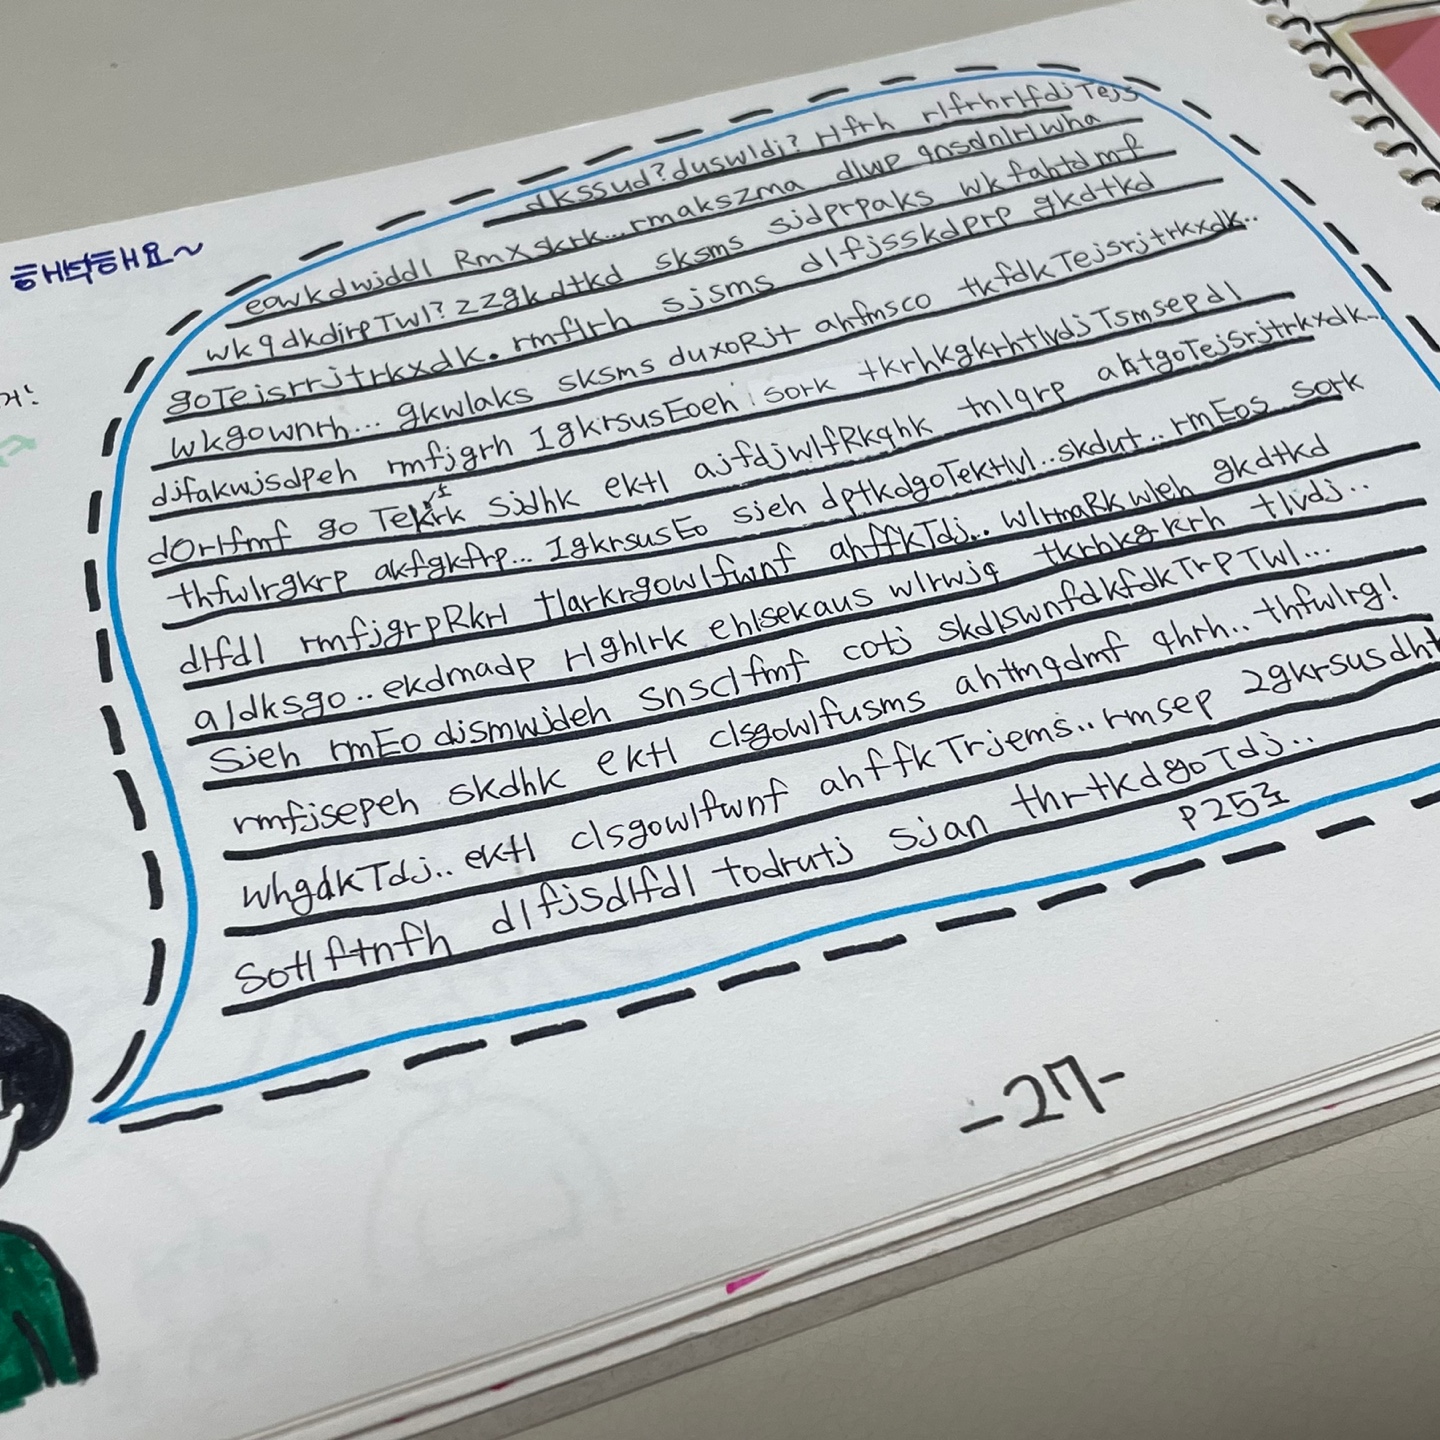 해보해요~
거!
dkssud?duswldj? Hfrh rlfrhrlfdjTejs
eowkdwjddl RmXskrk...rmakszma dlwp qnsdnlrlwha
wkqdkdirpTwl? zzgkdtkd sksms sjdprpaks wkfahtdmf
goTejsrrjtrkxdk. rmflrh sjsms dlfjsskdprp gkdtkd
wkgownrh... gkwlaks sksms duxoRjt ahfmsco tkfdkTejsrjtrkxdk..
djfakwjsdPeh rmfjgrh 1gkrsusEoeh sork tkrhkgkrhtlvdjTsmsepdl
dOrlfmf goTekrk sjdhk ektl ajfdjwlfRkqhk tnlqrp aktgoTejsrjtrkxdk..
thfwlrgkrp akfgkfrp... 1gkrsusEo sjeh dptkdgoTektlvl..skdut..rmEos sork
dlfdl rmfjgrpRkrl tlarkrgowlfwnf ahffkTdj.. wlrmaRkwleh gkdtkd
aldksgo.. ekdmadp rlghlrk ehlsekaus wlrwjq tkrhkgkrh tlvdj..
sjeh rmEo djsmwjdeh snsclfmf cotj skdlswnfdkfdkTrpTwl...
rmfjsepeh skdhk ektl clsgowlfusms ahtmqdmf qhrh.. thfwlrg!
whgdkTdj.. ektl clsgowlfwnf ahffkTrjems.. rmsep 2gkrsusdht
sotlftnfh dlfjsdlfdl todrutj sjan thrtkdgoTdj..
P25조
-27-